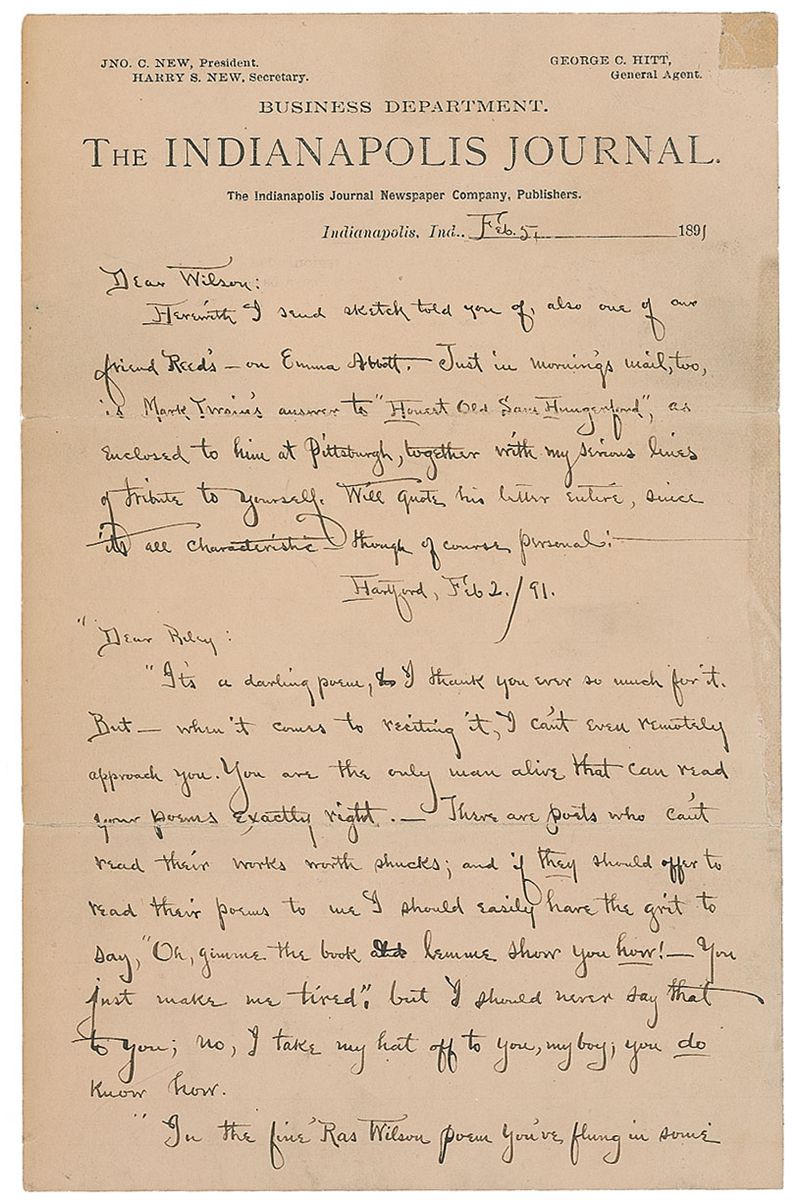 JNO. C. NEW, President.
HARRY S. NEW, Secretary.
GEORGE C. HITT,
General Agent.
BUSINESS DEPARTMENT.
THE INDIANAPOLIS JOURNAL.
The Indianapolis Journal Newspaper Company, Publishers.
Indianapolis, Ind., Feb. 5, 1891
Dear Wilson:
Herewith I send sketch told you of, also one of our
friend Reed's — on Emma Abbott. Just in morning's mail, too,
is Mark Twain's answer to "Honest Old Sam Hungerford", as
enclosed to him at Pittsburgh, together with my serious lines
of tribute to yourself. Will quote his letter entire, since
its all characteristic — though of course personal:
Hartford, Feb 2./91.
"Dear Riley:
"It's a darling poem, & I thank you ever so much for it.
But — when it comes to reciting it, I can't even remotely
approach you. You are the only man alive that can read
your poems exactly right. — There are poets who can't
read their works worth shucks; and if they should offer to
read their poems to me I should easily have the grit to
say, "Oh, gimme the book lemme show you how! — You
just make me tired": but I should never say that
to you; no, I take my hat off to you, my boy; you do
know how.
"In the fine 'Ras Wilson poem you've flung in some